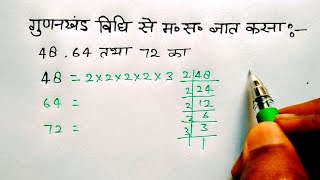 गुणनखंड विधि से म०स० ज्ञात करना:-
48, 64 तथा 72 का
48 = 2×2×2×2×3
64 =
72 =
2 48
2 24
2 12
2 6
3 3
1